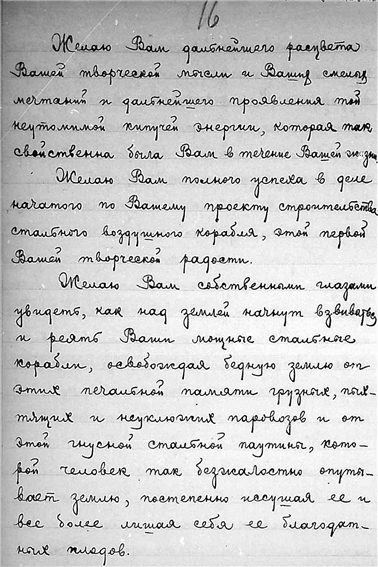 16
Желаю Вам дальнейшего расцвета
Вашей творческой мысли и Ваших смелых
мечтаний и дальнейшего проявления той
неутомимой кипучей энергии, которая так
свойственна была Вам в течение Вашей жизни.
Желаю Вам полного успеха в деле
начатого по Вашему проекту строительства
стального воздушного корабля, этой первой
Вашей творческой радости.
Желаю Вам собственными глазами
увидеть, как над землей начнут взвиваться
и реять Ваши мощные стальные
корабли, освобождая бедную землю от
этих печальной памяти грузных, пых-
тящих и неуклюжих паровозов и от
этой гнусной стальной паутины, кото-
рой человек так безжалостно опуты-
вает землю, постепенно иссушая ее и
все более лишая себя ее благодат-
ных плодов.